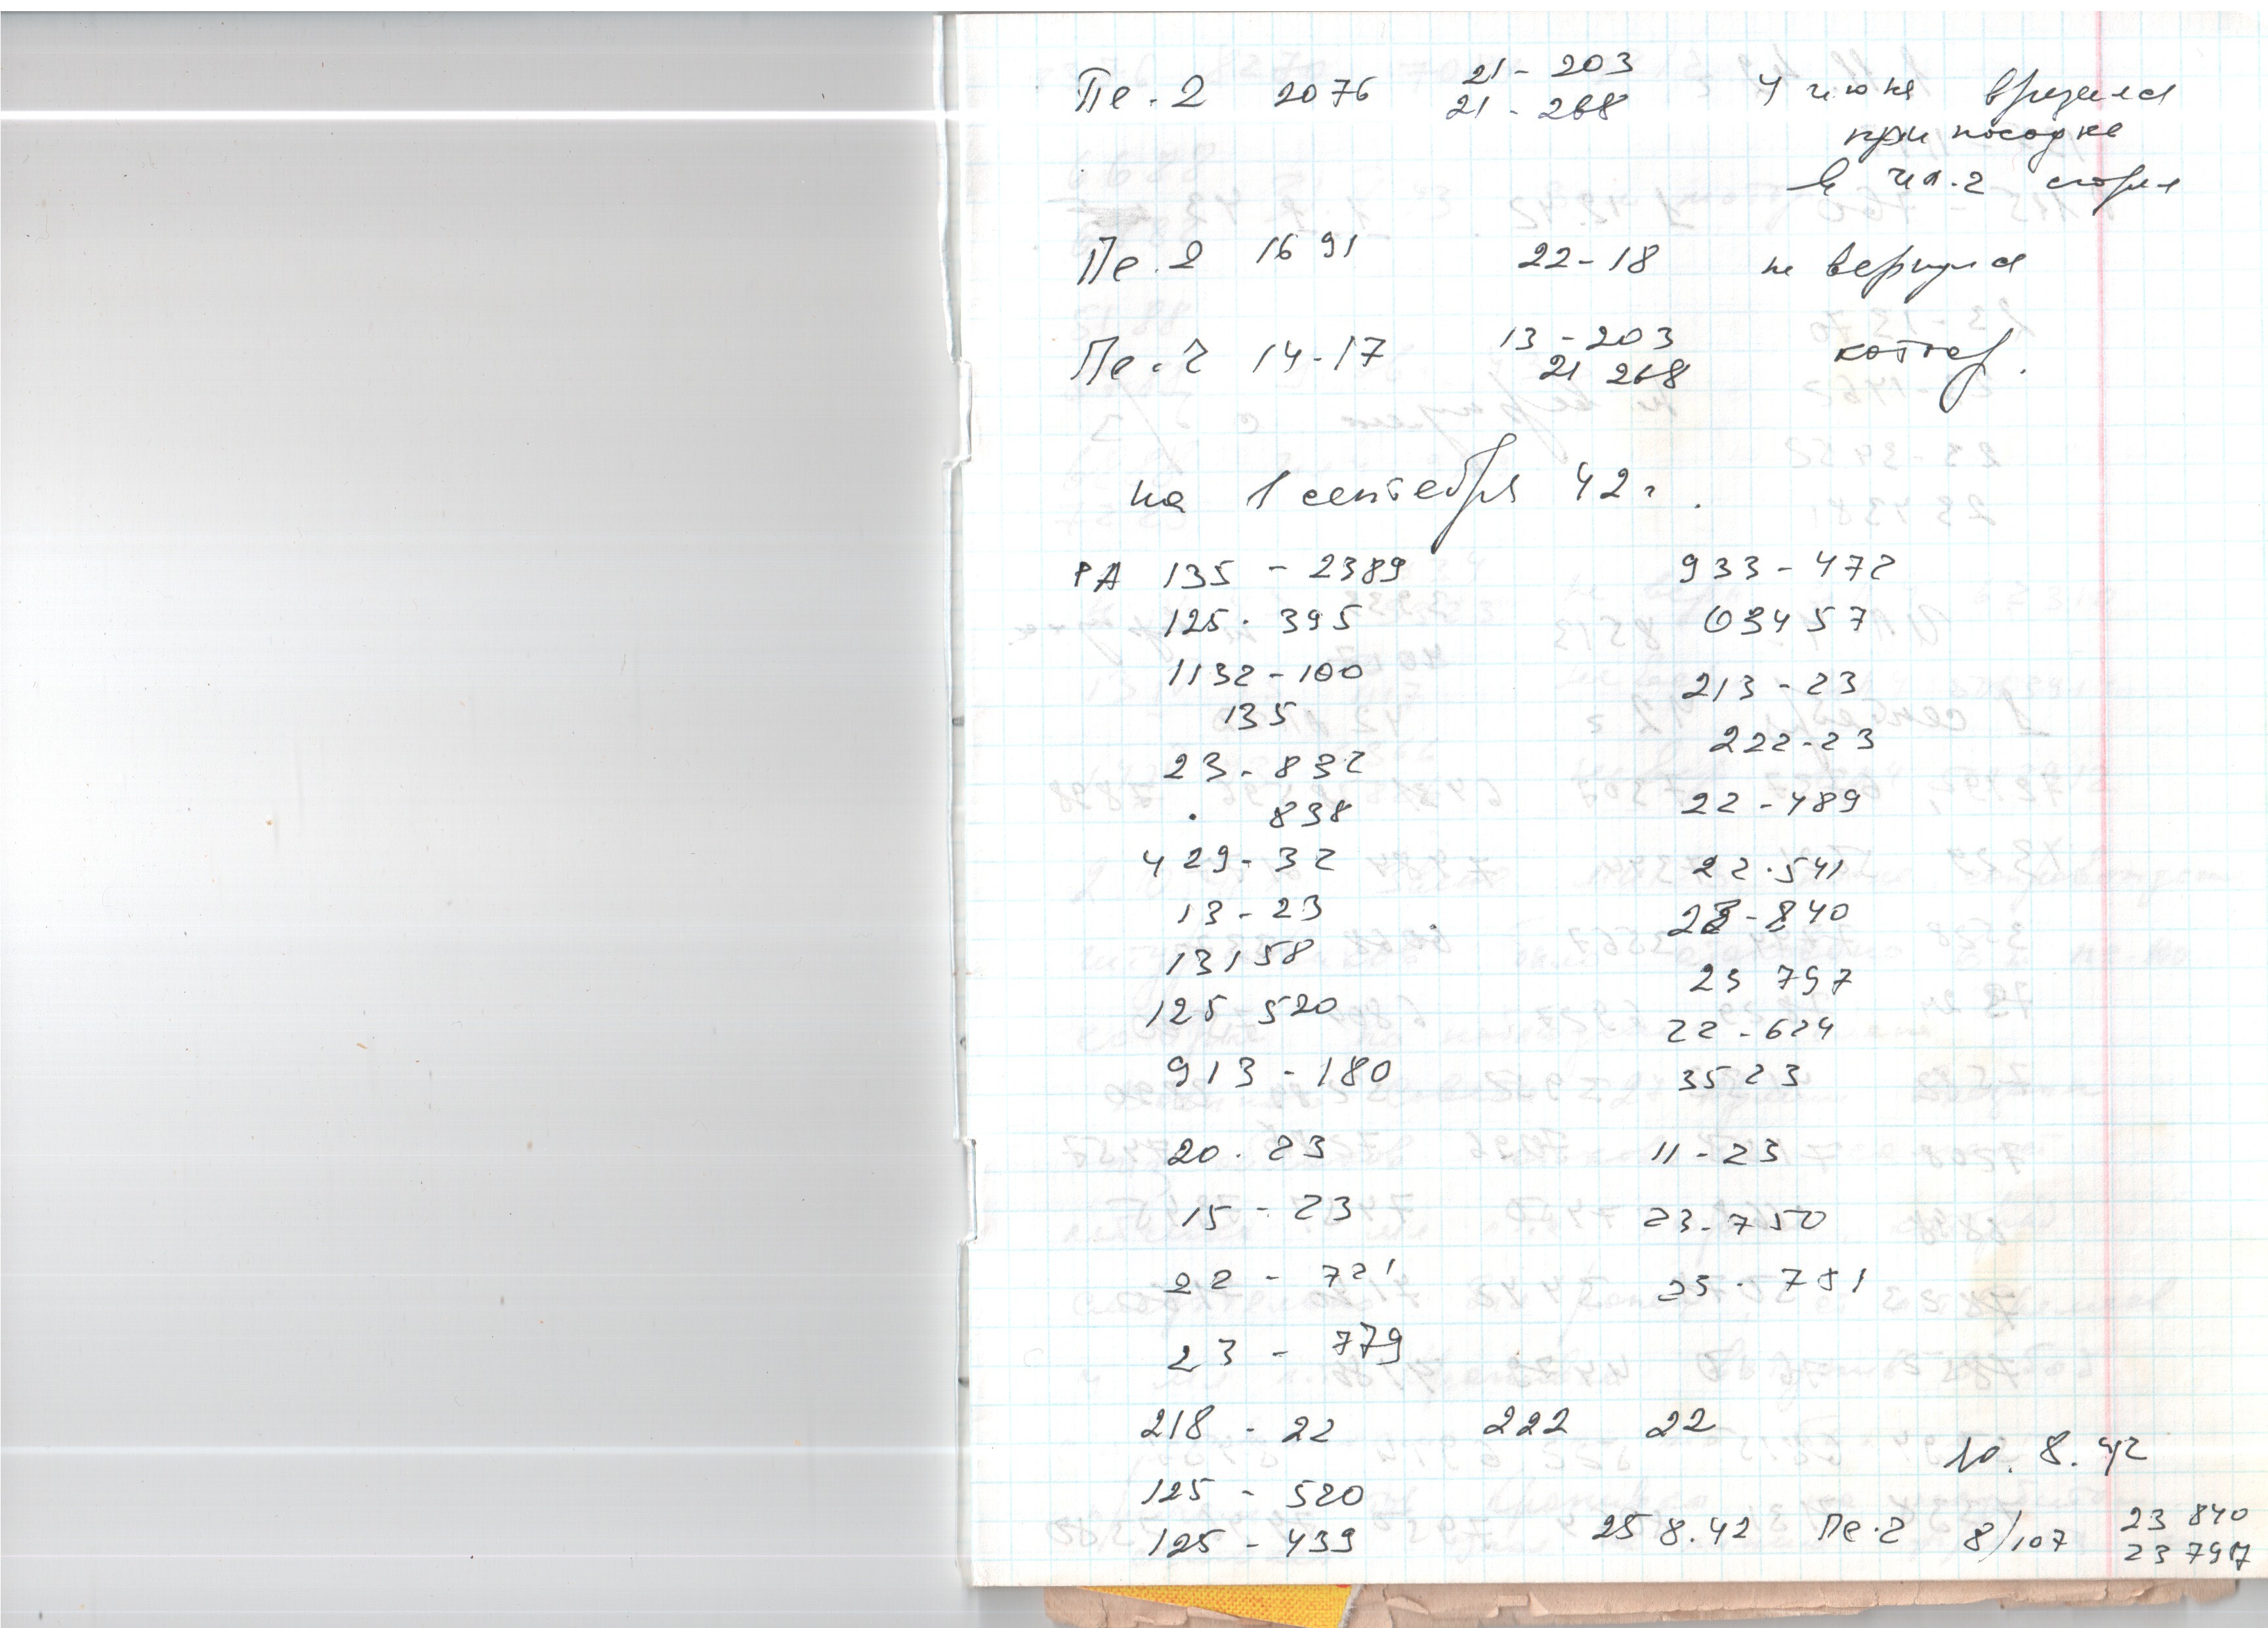 Пе-2 2076 21-203 4 июня врезался
21-268
при посадке
в Ил-2 сгорел
Пе-2 1691 22-18 не вернулся
Пе-2 14-17 13-203
21 268
на 1 сентября 42 г.
РА 135-2389 933-472
125-395 03457
1132-100 213-23
135 222-23
23-832 22-489
838
429-32 22-541
13-23 23-840
13158 23 797
125-520 22-624
913-180 3523
20-23 11-23
15-23 23-750
22-721 23-781
23-779
218-22 222 22
10.8.42
125-520
125-439 25 8.42 Пе-2 8/107 23 840
23 797